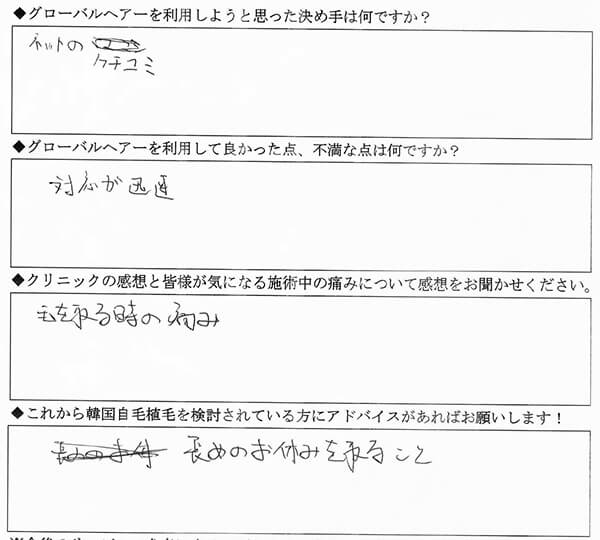 ◆グローバルヘアーを利用しようと思った決め手は何ですか？
ネットの
クチコミ
◆グローバルヘアーを利用して良かった点、不満な点は何ですか？
対応が迅速
◆クリニックの感想と皆様が気になる施術中の痛みについて感想をお聞かせください。
毛を取る時の痛み
◆これから韓国自毛植毛を検討されている方にアドバイスがあればお願いします！
長めのお休みを取ること